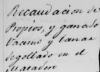 Recaudacion de
Propios, y ganado
Vacuno y lanar
degollado en el
Matadero